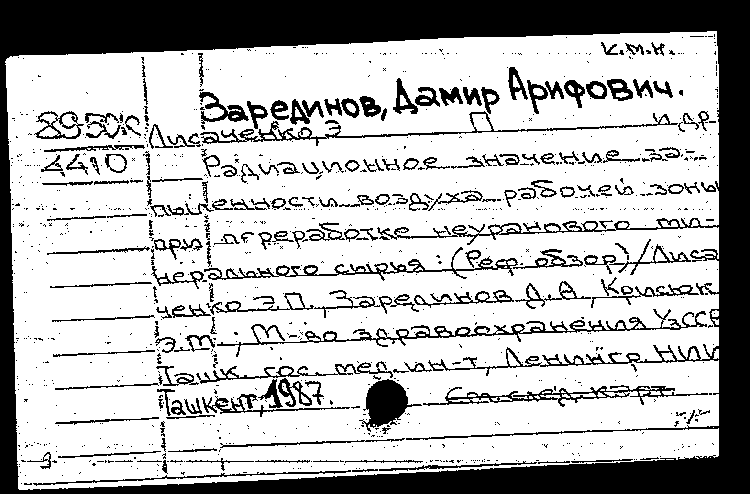 к.м.н.
Зарединов, Дамир Арифович.
89-50к Лисаченко, Э П и др
4410 Радиационное значение за-
пыленности воздуха рабочей зоны
при переработке неуранового ми-
нерального сырья : (Реф. обзор)/Лиса
ченко Э.П., Зарединов Д.А., Крисюк
Э.М. ; М-во здравоохранения УзССР
Ташк. гос. мед. ин-т, Ленингр. НИИ
Ташкент, 1987. См. след. карт.